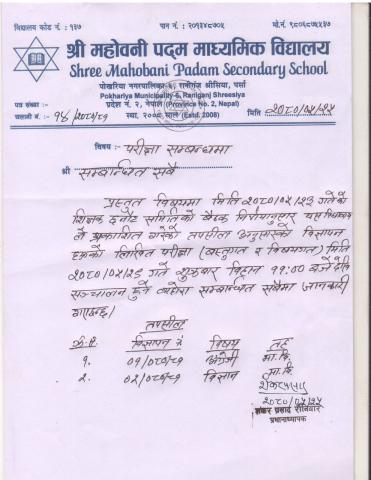 विद्यालय कोड नं. : १३७ पान नं. : २०१३४८७०५ मो.नं. ९८०६८७६५३७
श्री महोवनी पद्म माध्यमिक विद्यालय
Shree Mahobani Padam Secondary School
पोखरिया नगरपालिका-६, रानीगंज श्रीसिया, पर्सा
Pokhariya Municipality-6, Raniganj Shreesiya
पत्र संख्या :- प्रदेश नं. २, नेपाल (Province No. 2, Nepal)
चलानी नं. :- १४/०८०/८१ स्था. २००८ साल (Estd. 2008) मिति २०८०/०५/२५
विषय :- परीक्षा सम्बन्धमा
श्री सम्बन्धित सबै
प्रस्तुत विषयमा मिति २०८०/०५/२३ गतेको
शिक्षक छनोट समितिको बैठक निर्णयानुसार यस विद्यालय
ले प्रकाशित गरेको तपशील अनुसारको विज्ञापन
हरुको लिखित परीक्षा (वस्तुगत र विषयगत) मिति
२०८०/०५/२८ गते शुक्रबार बिहान ११:०० बजे देखि
सञ्चालन हुने व्यहोरा सम्बन्धित सबैमा जानकारी
गराइन्छ।
तपशील
क्र.सं. विज्ञापन नं विषय तह
१. ०१/०८०/८१ अंग्रेजी मा.वि.
२. ०२/०८०/८१ विज्ञान मा.वि.
२०८०/०५/२५
शंकर प्रसाद सोनिवार
प्रधानाध्यापक